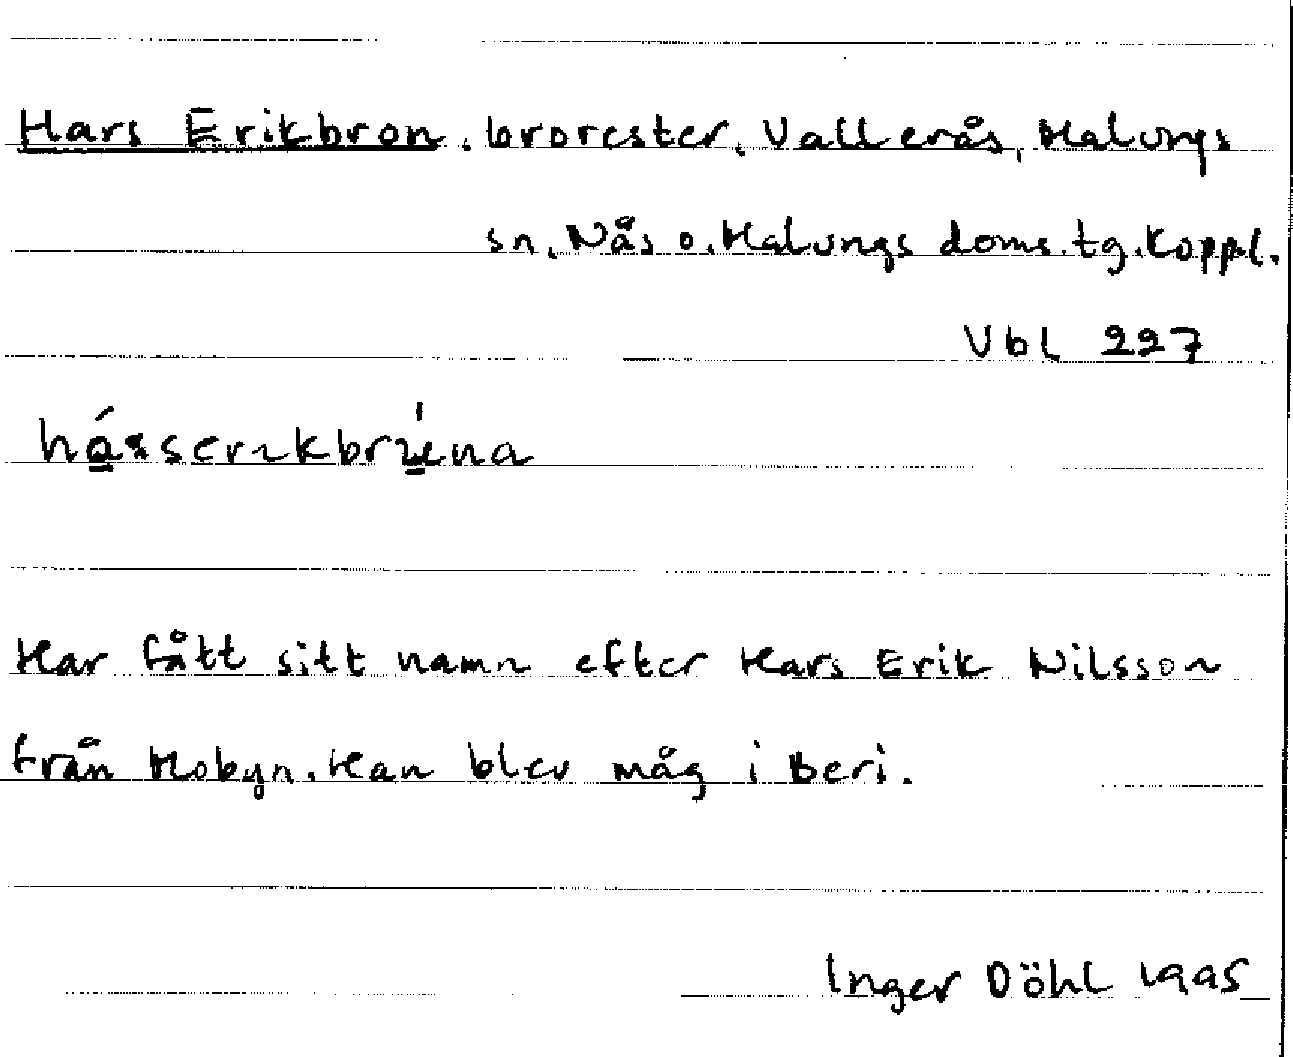 Hars Erikbron, brorester, Vallerås, Malungs
sn, Nås o. Malungs doms.tg. Koppl.
Vbl 227
Har fått sitt namn efter Hars Erik Nilsson
från Mobyn. Han blev måg i Beri.
Inger Döhl 1995